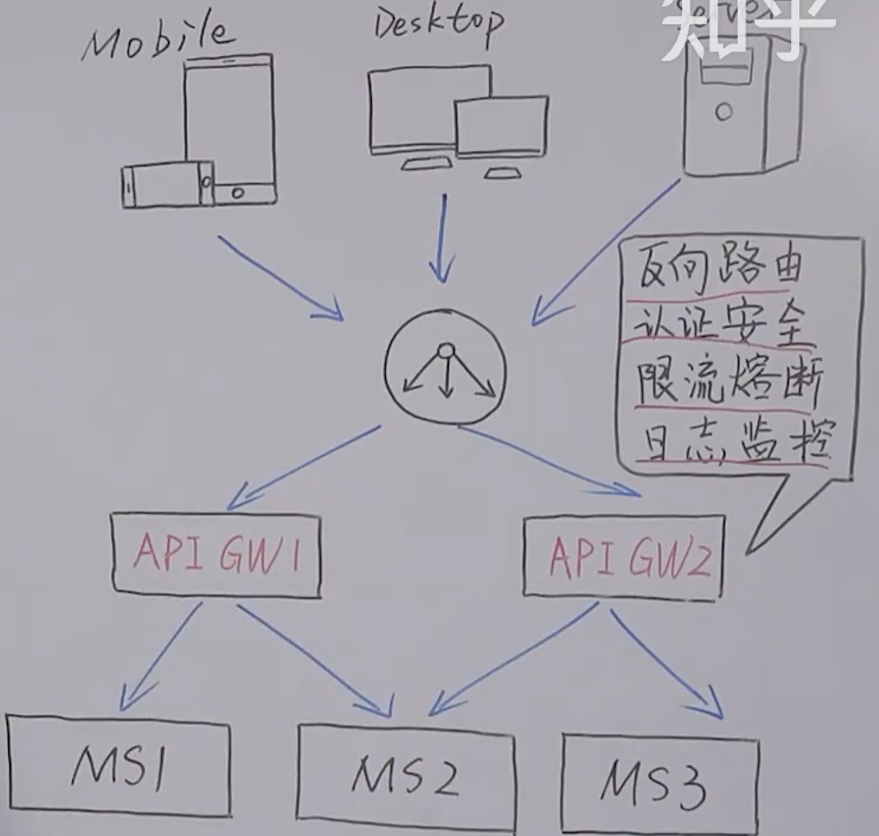 Mobile
Desktop
Server
知乎
反向路由
认证安全
限流熔断
日志监控
API GW1
API GW2
MS1
MS2
MS3